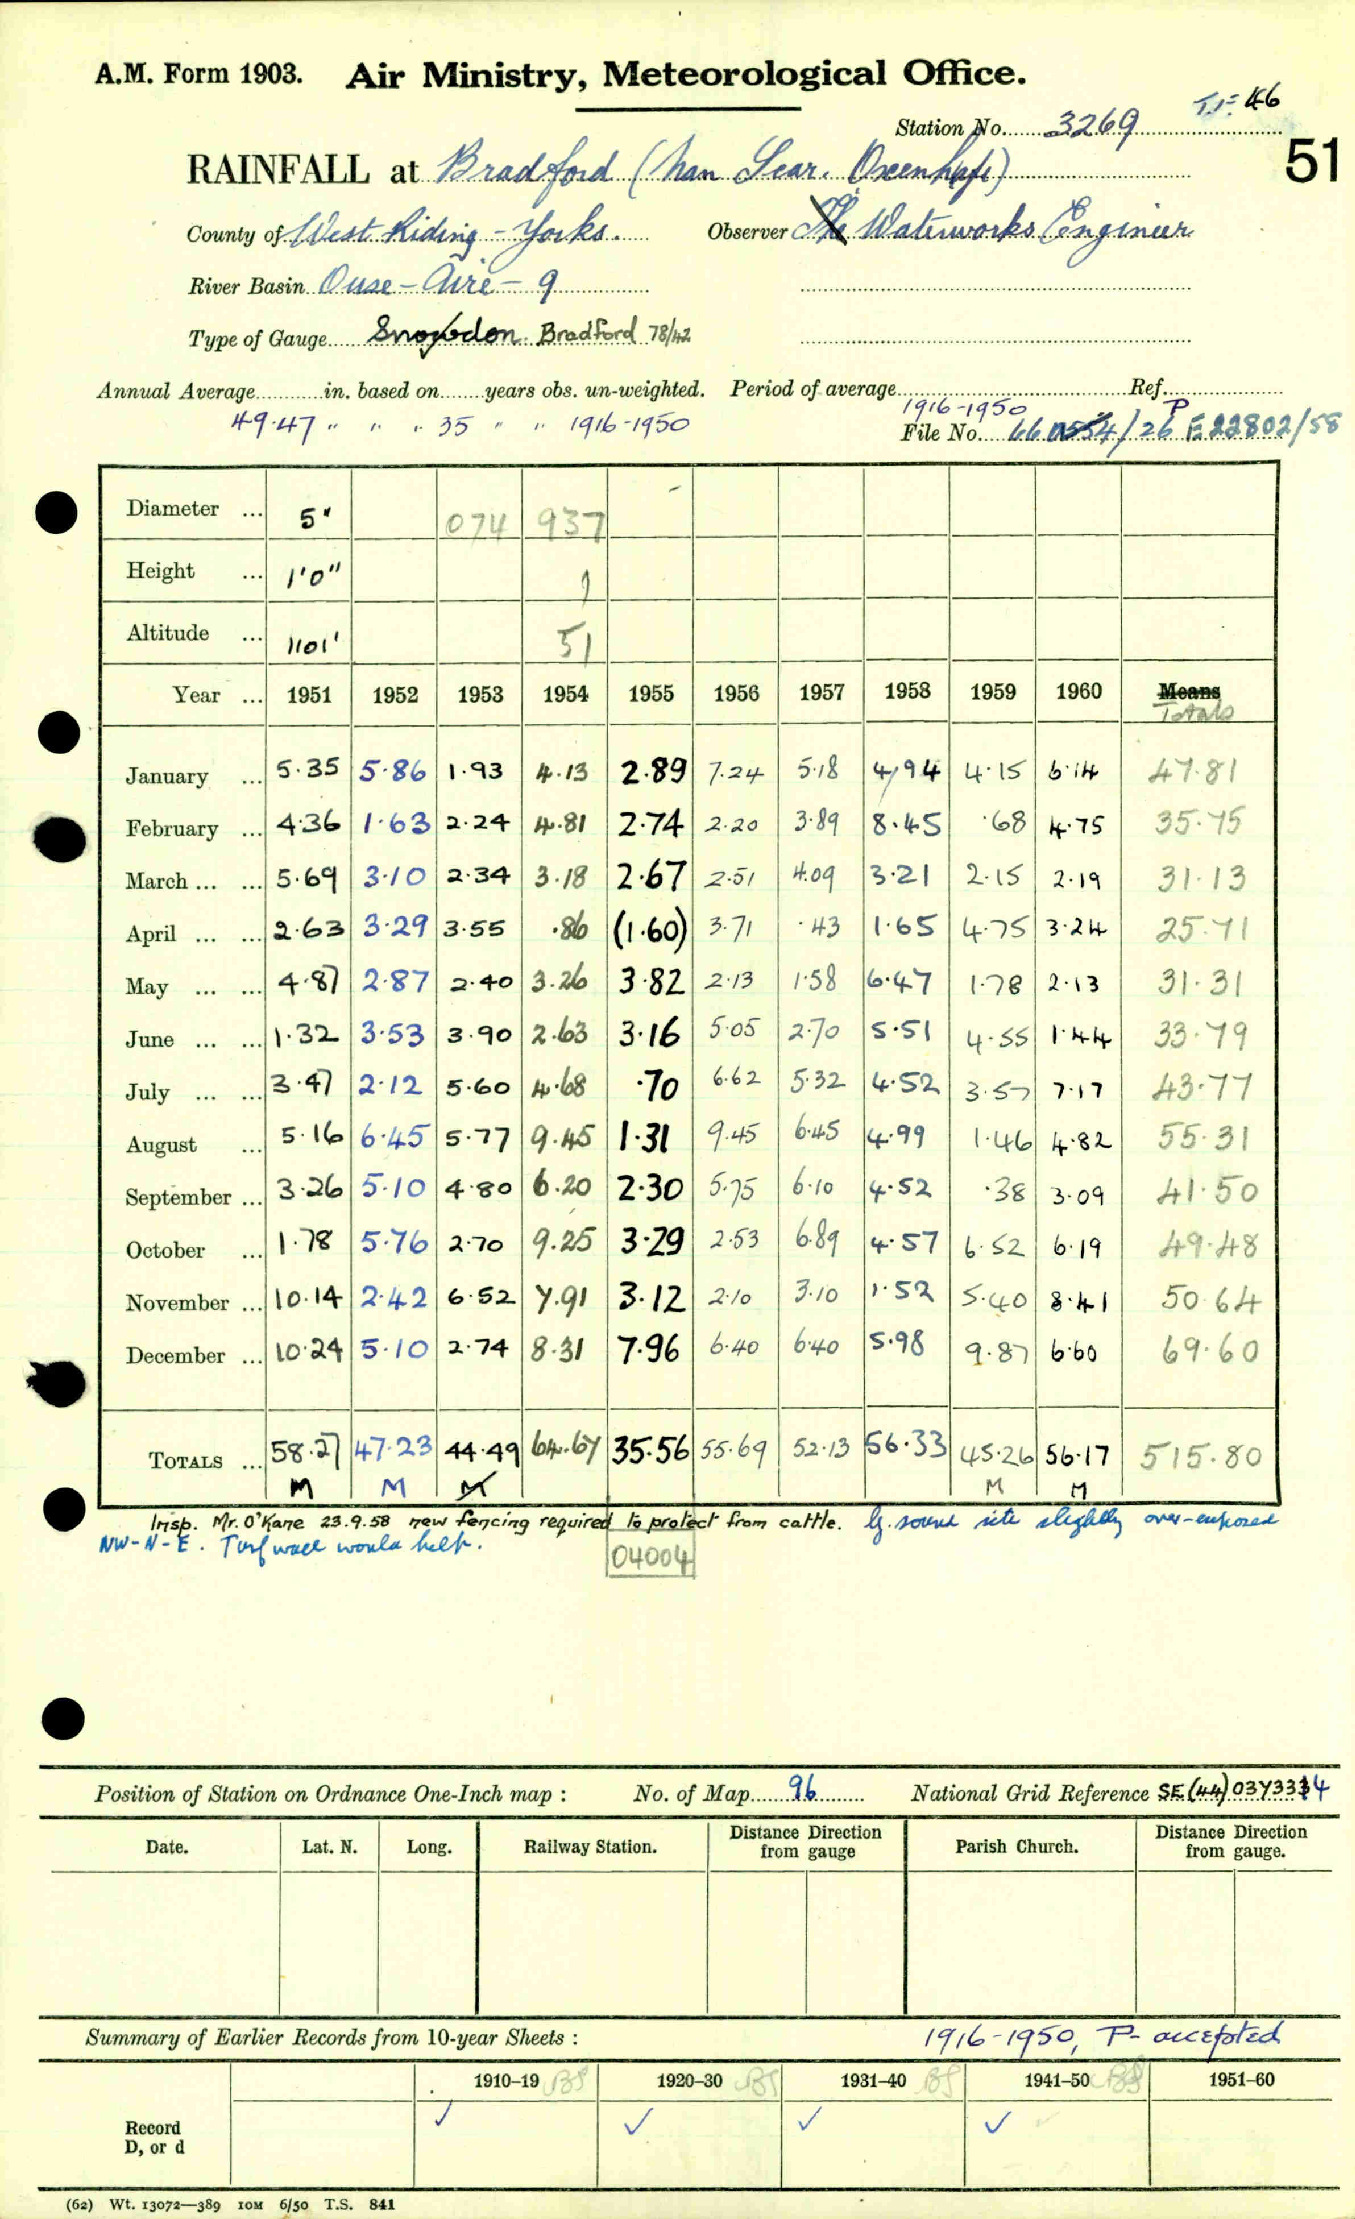 A.M. Form 1903. Air Ministry, Meteorological Office.
46
Station No. 3269
51
RAINFALL at Bradford (Nan Scar. Oxenhope)
County of West Riding - Yorks. Observer The Waterworks Engineer
River Basin Ouse - Aire - 9
Type of Gauge Snowdon Bradford 78/42
Annual Average in. based on years obs. un-weighted. Period of average 1916-1950 Ref. P
49.47 " " " 35 " " 1916-1950
File No. /26 E 22802/58
Diameter ... 5" 074 937
Height ... 1'0" 1
Altitude ... 1101' 51
Year ... 1951 1952 1953 1954 1955 1956 1957 1958 1959 1960 Means Totals
January ... 5.35 5.86 1.93 4.13 2.89 7.24 5.18 4.94 4.15 6.14 47.81
February ... 4.36 1.63 2.24 4.81 2.74 2.20 3.89 8.45 .68 4.75 35.75
March ... ... 5.69 3.10 2.34 3.18 2.67 2.51 4.09 3.21 2.15 2.19 31.13
April ... ... 2.63 3.29 3.55 .86 (1.60) 3.71 .43 1.65 4.75 3.24 25.71
May ... ... 4.87 2.87 2.40 3.26 3.82 2.13 1.58 6.47 1.78 2.13 31.31
June ... ... 1.32 3.53 3.90 2.63 3.16 5.05 2.70 5.51 4.55 1.44 33.79
July ... ... 3.47 2.12 5.60 4.68 .70 6.62 5.32 4.52 3.57 7.17 43.77
August ... 5.16 6.45 5.77 9.45 1.31 9.45 6.45 4.99 1.46 4.82 55.31
September ... 3.26 5.10 4.80 6.20 2.30 5.75 6.10 4.52 .38 3.09 41.50
October ... 1.78 5.76 2.70 9.25 3.29 2.53 6.89 4.57 6.52 6.19 49.48
November ... 10.14 2.42 6.52 7.91 3.12 2.10 3.10 1.52 5.40 8.41 50.64
December ... 10.24 5.10 2.74 8.31 7.96 6.40 6.40 5.98 9.87 6.60 69.60
TOTALS ... 58.27 47.23 44.49 64.67 35.56 55.69 52.13 56.33 45.26 56.17 515.80
M M M M M
Insp. Mr. O'Kane 23.9.58 new fencing required to protect from cattle. sound site slightly over-exposed
NW-N-E. Turf wall would help.
04004
Position of Station on Ordnance One-Inch map : No. of Map 96 National Grid Reference SE (44)
Date. Lat. N. Long. Railway Station. Distance from Direction gauge Parish Church. Distance from Direction gauge.
Summary of Earlier Records from 10-year Sheets : 1916-1950, P- accepted
1910–19 1920–30 1931–40 1941–50 1951–60
Record
D, or d
(62) Wt. 13072—389 10M 6/50 T.S. 841